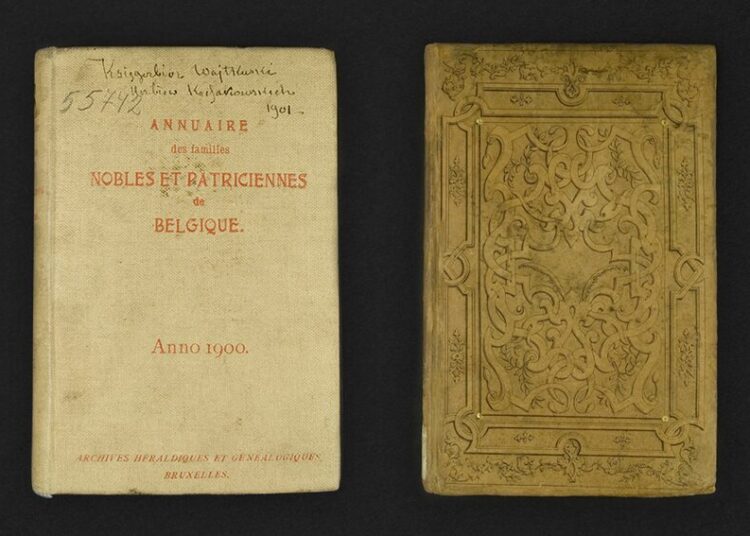 Księgozbiór Wojtkuski
Hrabiów Kossakowskich
55742
1901
ANNUAIRE
des familles
NOBLES ET PATRICIENNES
de
BELGIQUE.
Anno 1900.
ARCHIVES HÉRALDIQUES ET GÉNÉALOGIQUES,
BRUXELLES.